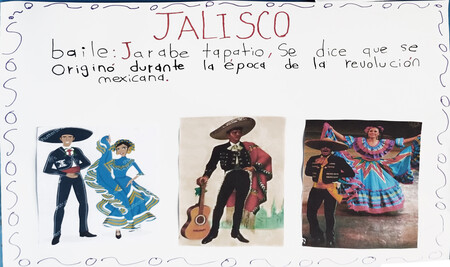 JALISCO
baile: Jarabe tapatio, Se dice que se
Origino durante la época de la revolución
mexicana.